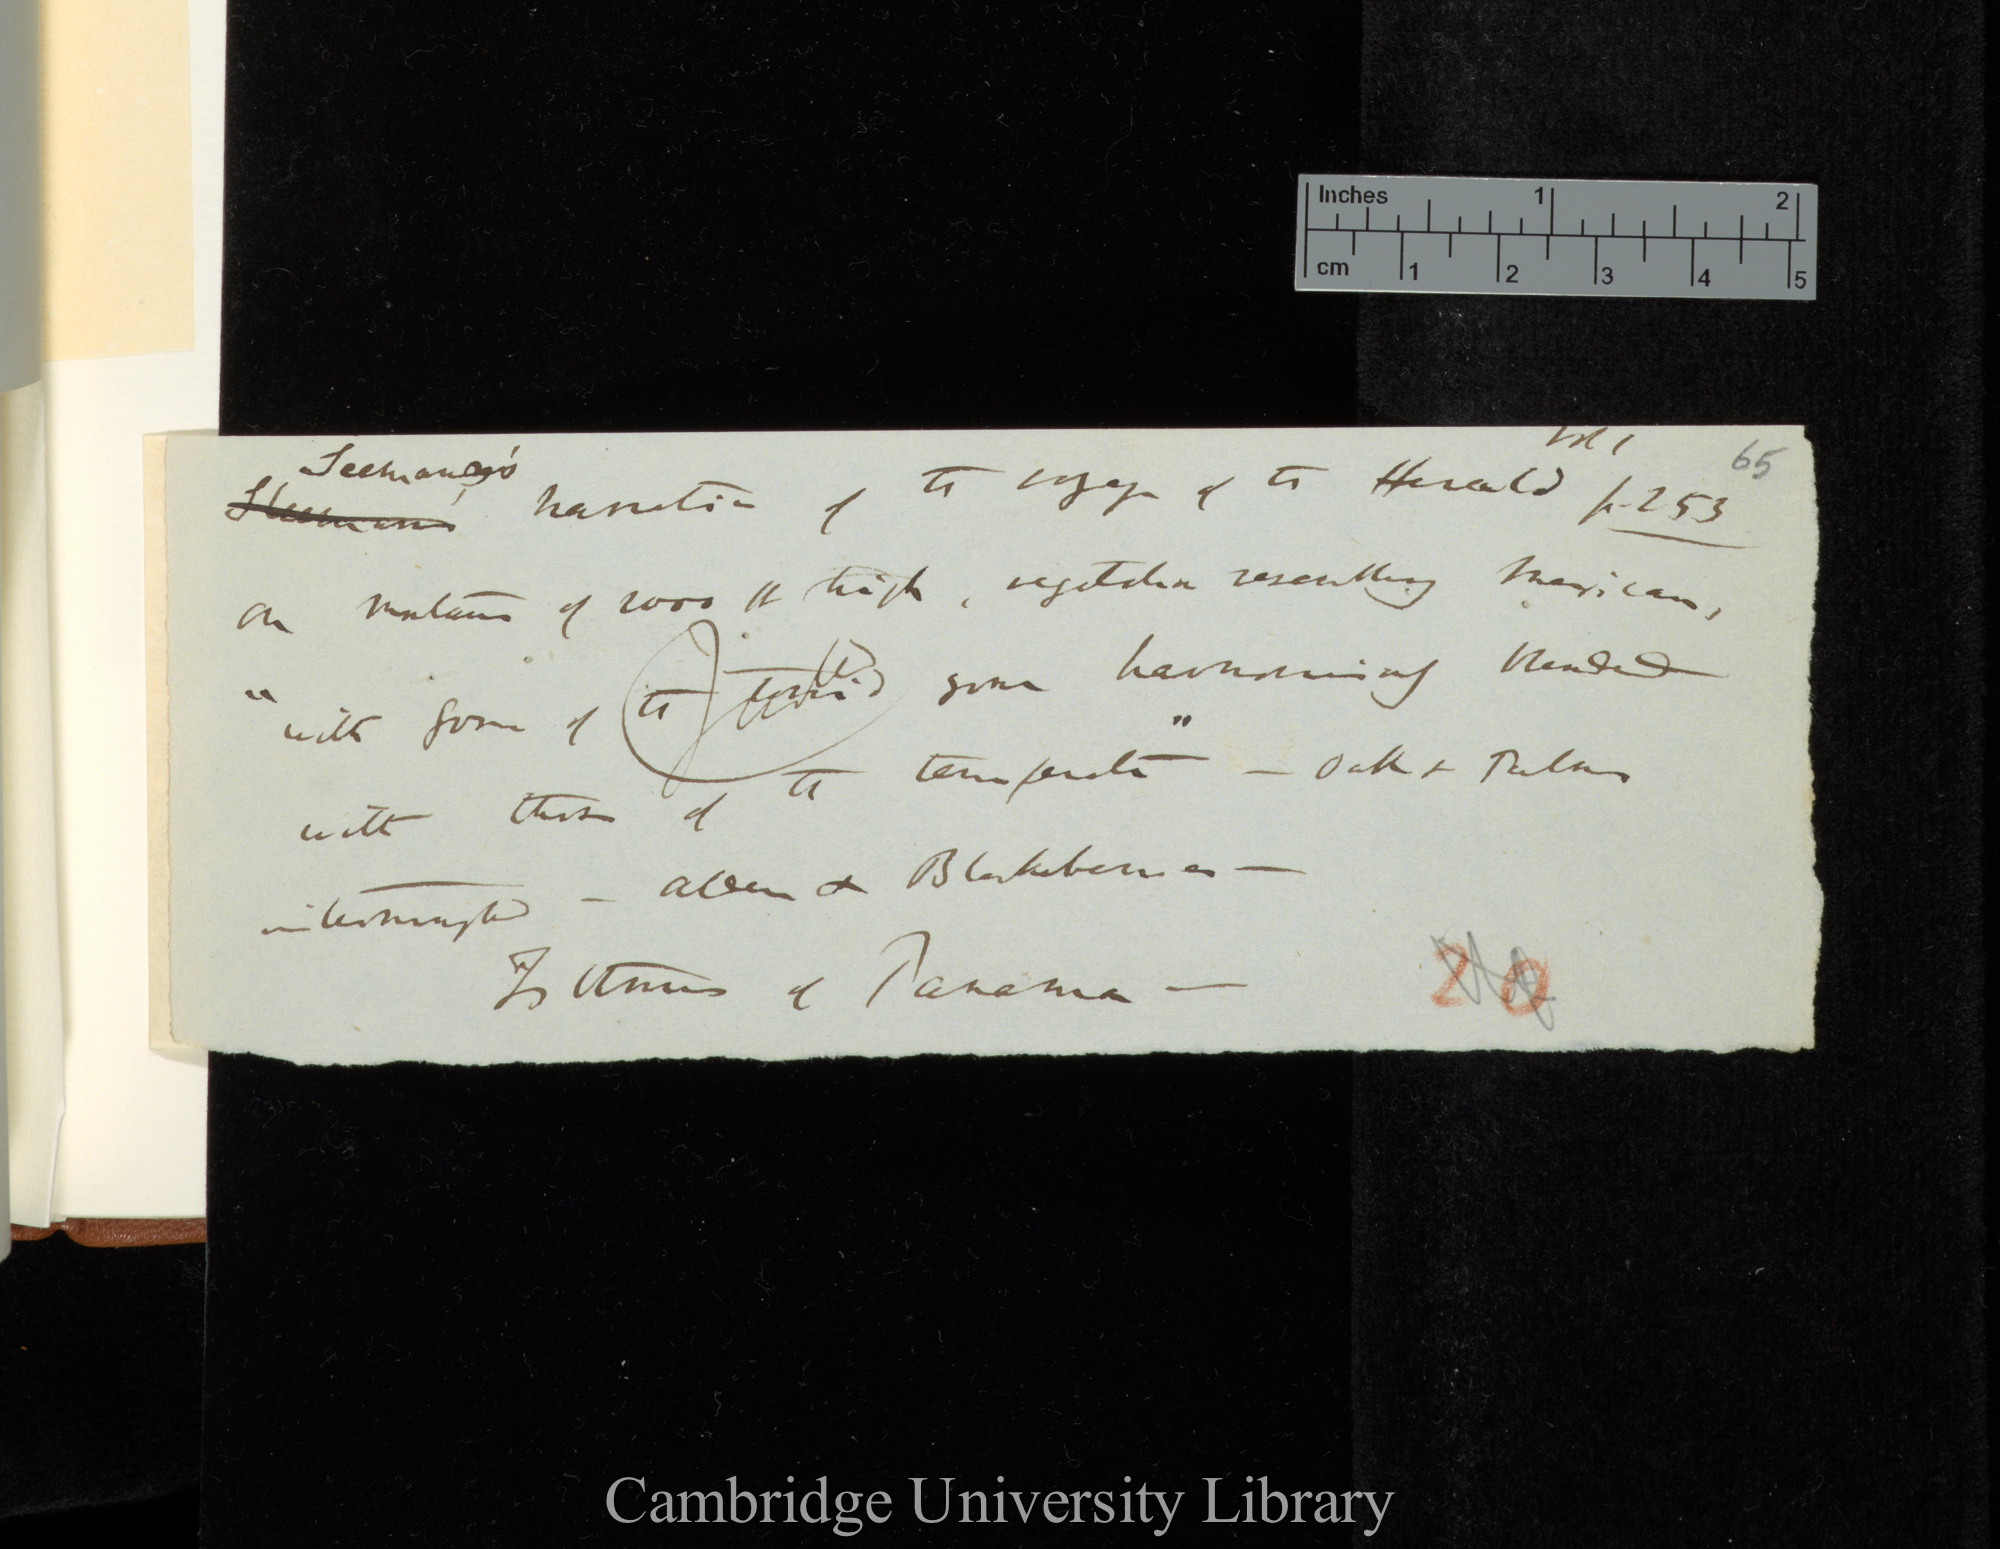 Inches 1 2
cm 1 2 3 4 5
65
Vol 1
Seemann's
Seemann's narrative of the voyage of the Herald p. 253
On mountains of 2000 ft high, vegetation resembling Mexican,
"with forms of the torrid zone harmoniously blended
with those of the temperate" — Oak & Palms
intermingled — Alder & Blackberries —
Isthmus of Panama —
20
Cambridge University Library